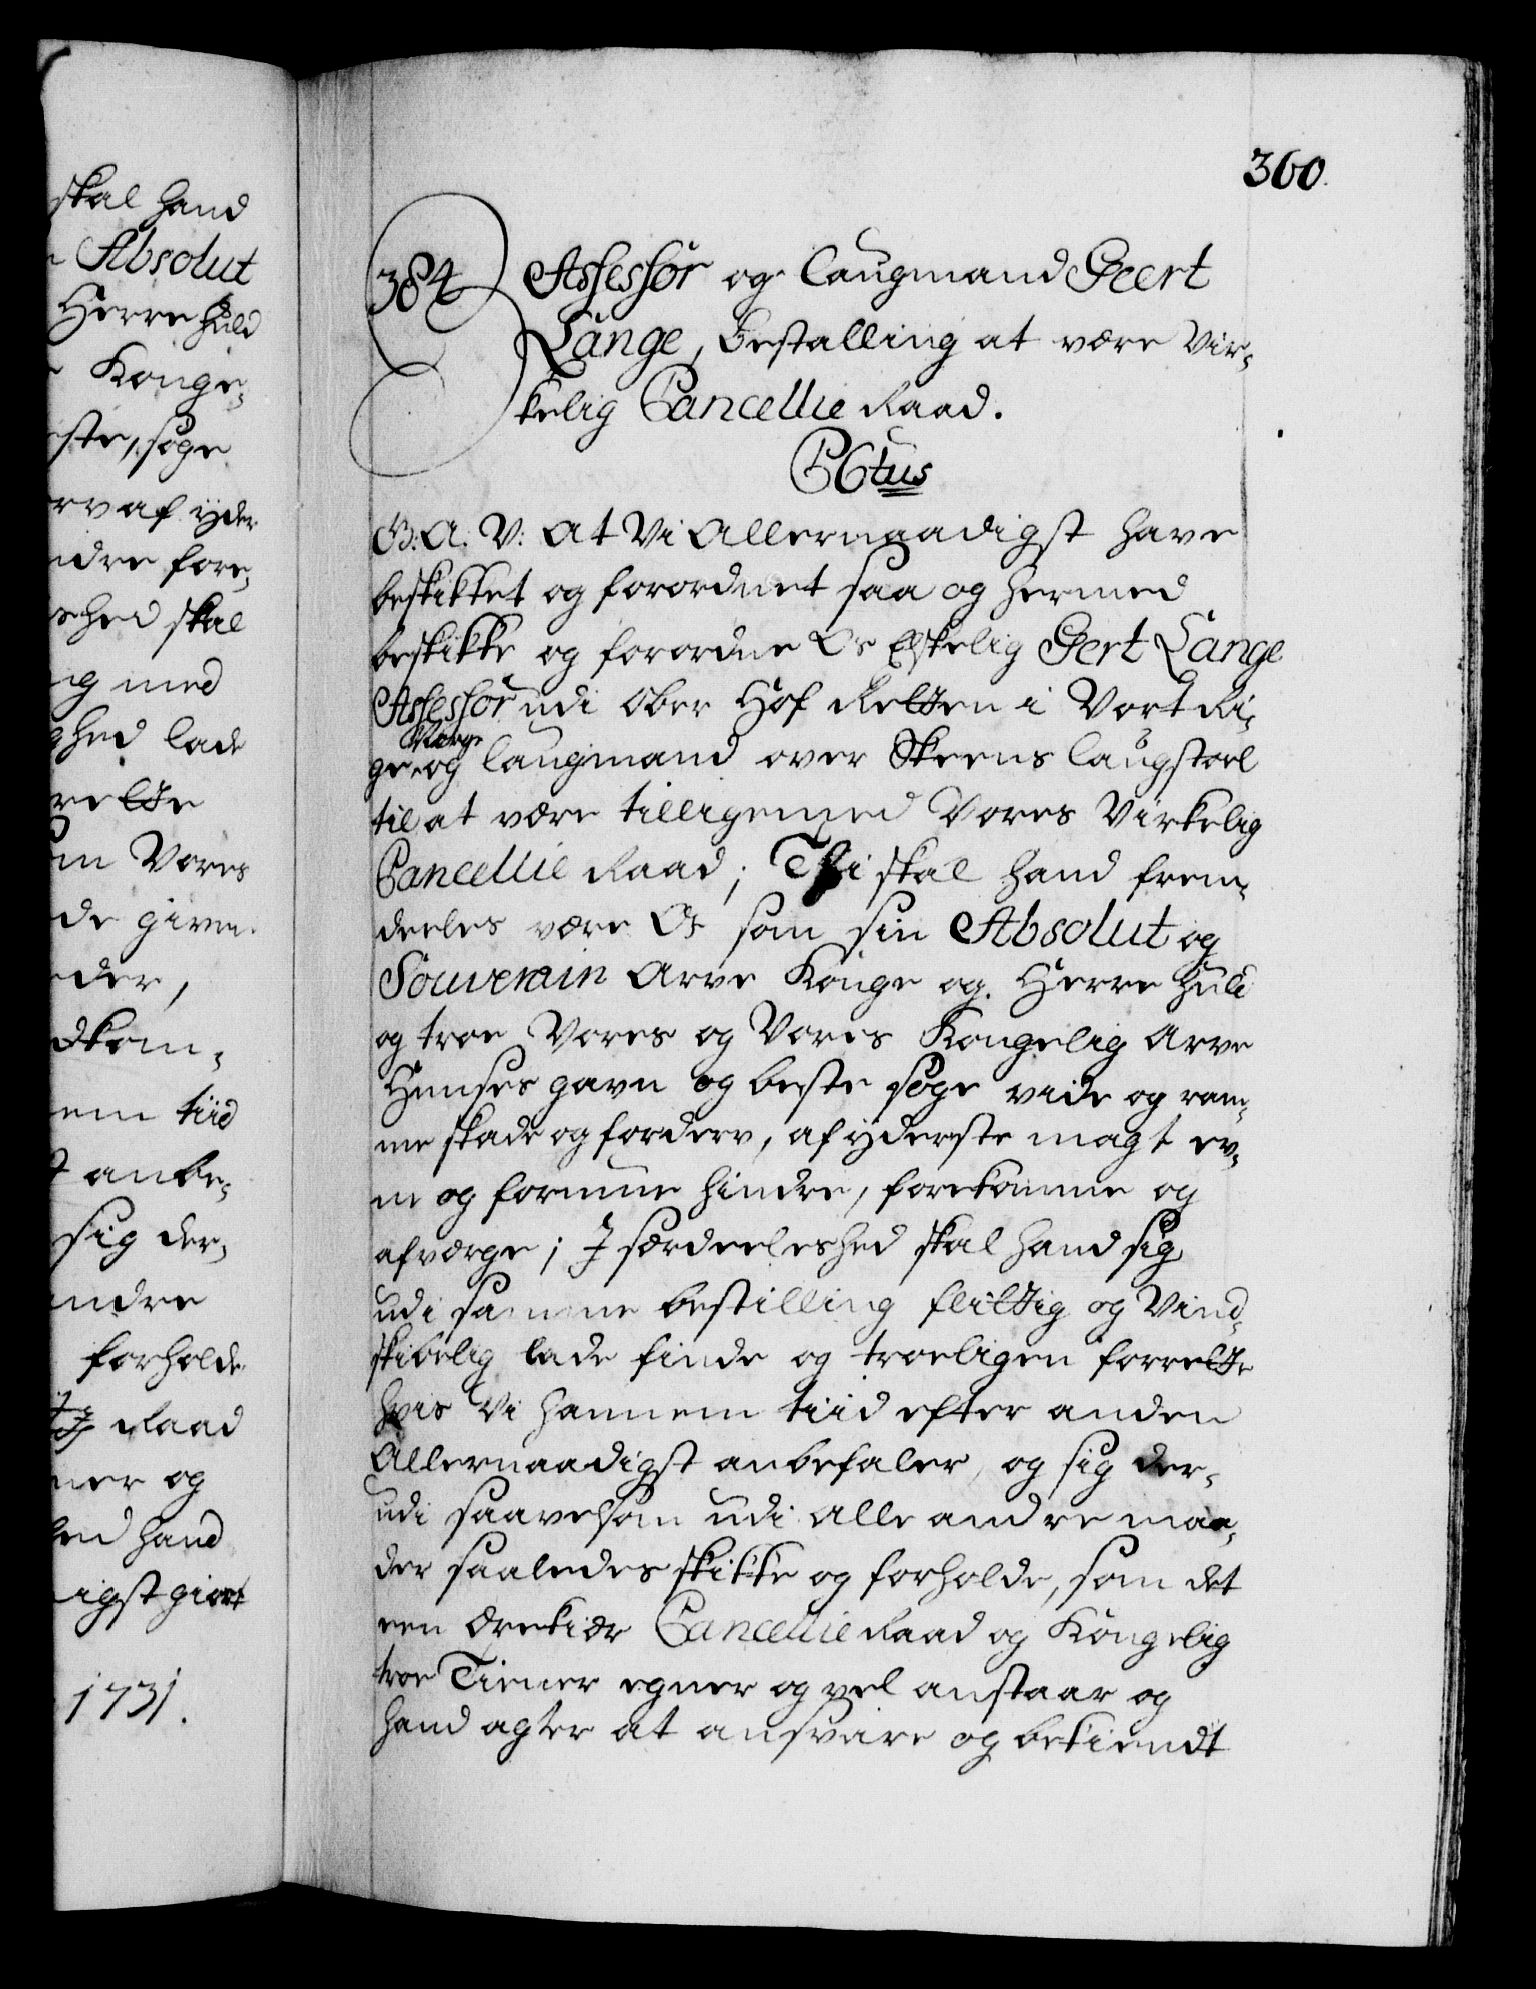 skal hand
Absolut
Herre huld
Konge-
ste, søge
rv af yder
ndre fore-
shed skal
ig med
ghed lade
rette
m Vores
de given
der,
dkom-
em tiid
anbe-
sig der-
ndre
forholde
Raad
ner og
hed hand
igst giort
1731.
360.
384 Assessor og Laugmand Geert
Lange, Bestalling at være Vir-
kelig Cancellie Raad.
C6tus
G: A. V: At Vi Allernaadigst have
beskikket og forordnet saa og hermed
beskikke og forordne Os Elskelig Gert Lange
Assessor udi Ober Hof Retten i Vort Ri-
ge Norge og Laugmand over Skeens Laugstoel
til at være tilligemed Vores Virkelig
Cancellie Raad; Thi skal hand frem-
deeles være Os som sin Absolut og
Souverain Arve Konge og Herre huld
og troe Vores og Vores Kongelig Arve
Huuses gavn og beste søge vide og ram-
me skade og forderv, af yderste magt ev-
ne og formue hindre, forekomme og
afværge; J særdeeleshed skal hand sig
udi samme bestilling flittig og Vind-
skibelig lade finde og troeligen forrette
hvis Vi hannem tiid efter anden
Allernaadigst anbefaler, og sig der-
udi saavelsom udi alle andre maa-
der saaledes skikke og forholde, som det
een ærekiær Cancellie Raad og Kongelig
troe Tiener egner og vel anstaar og
hand agter at ansvare og bekiendt